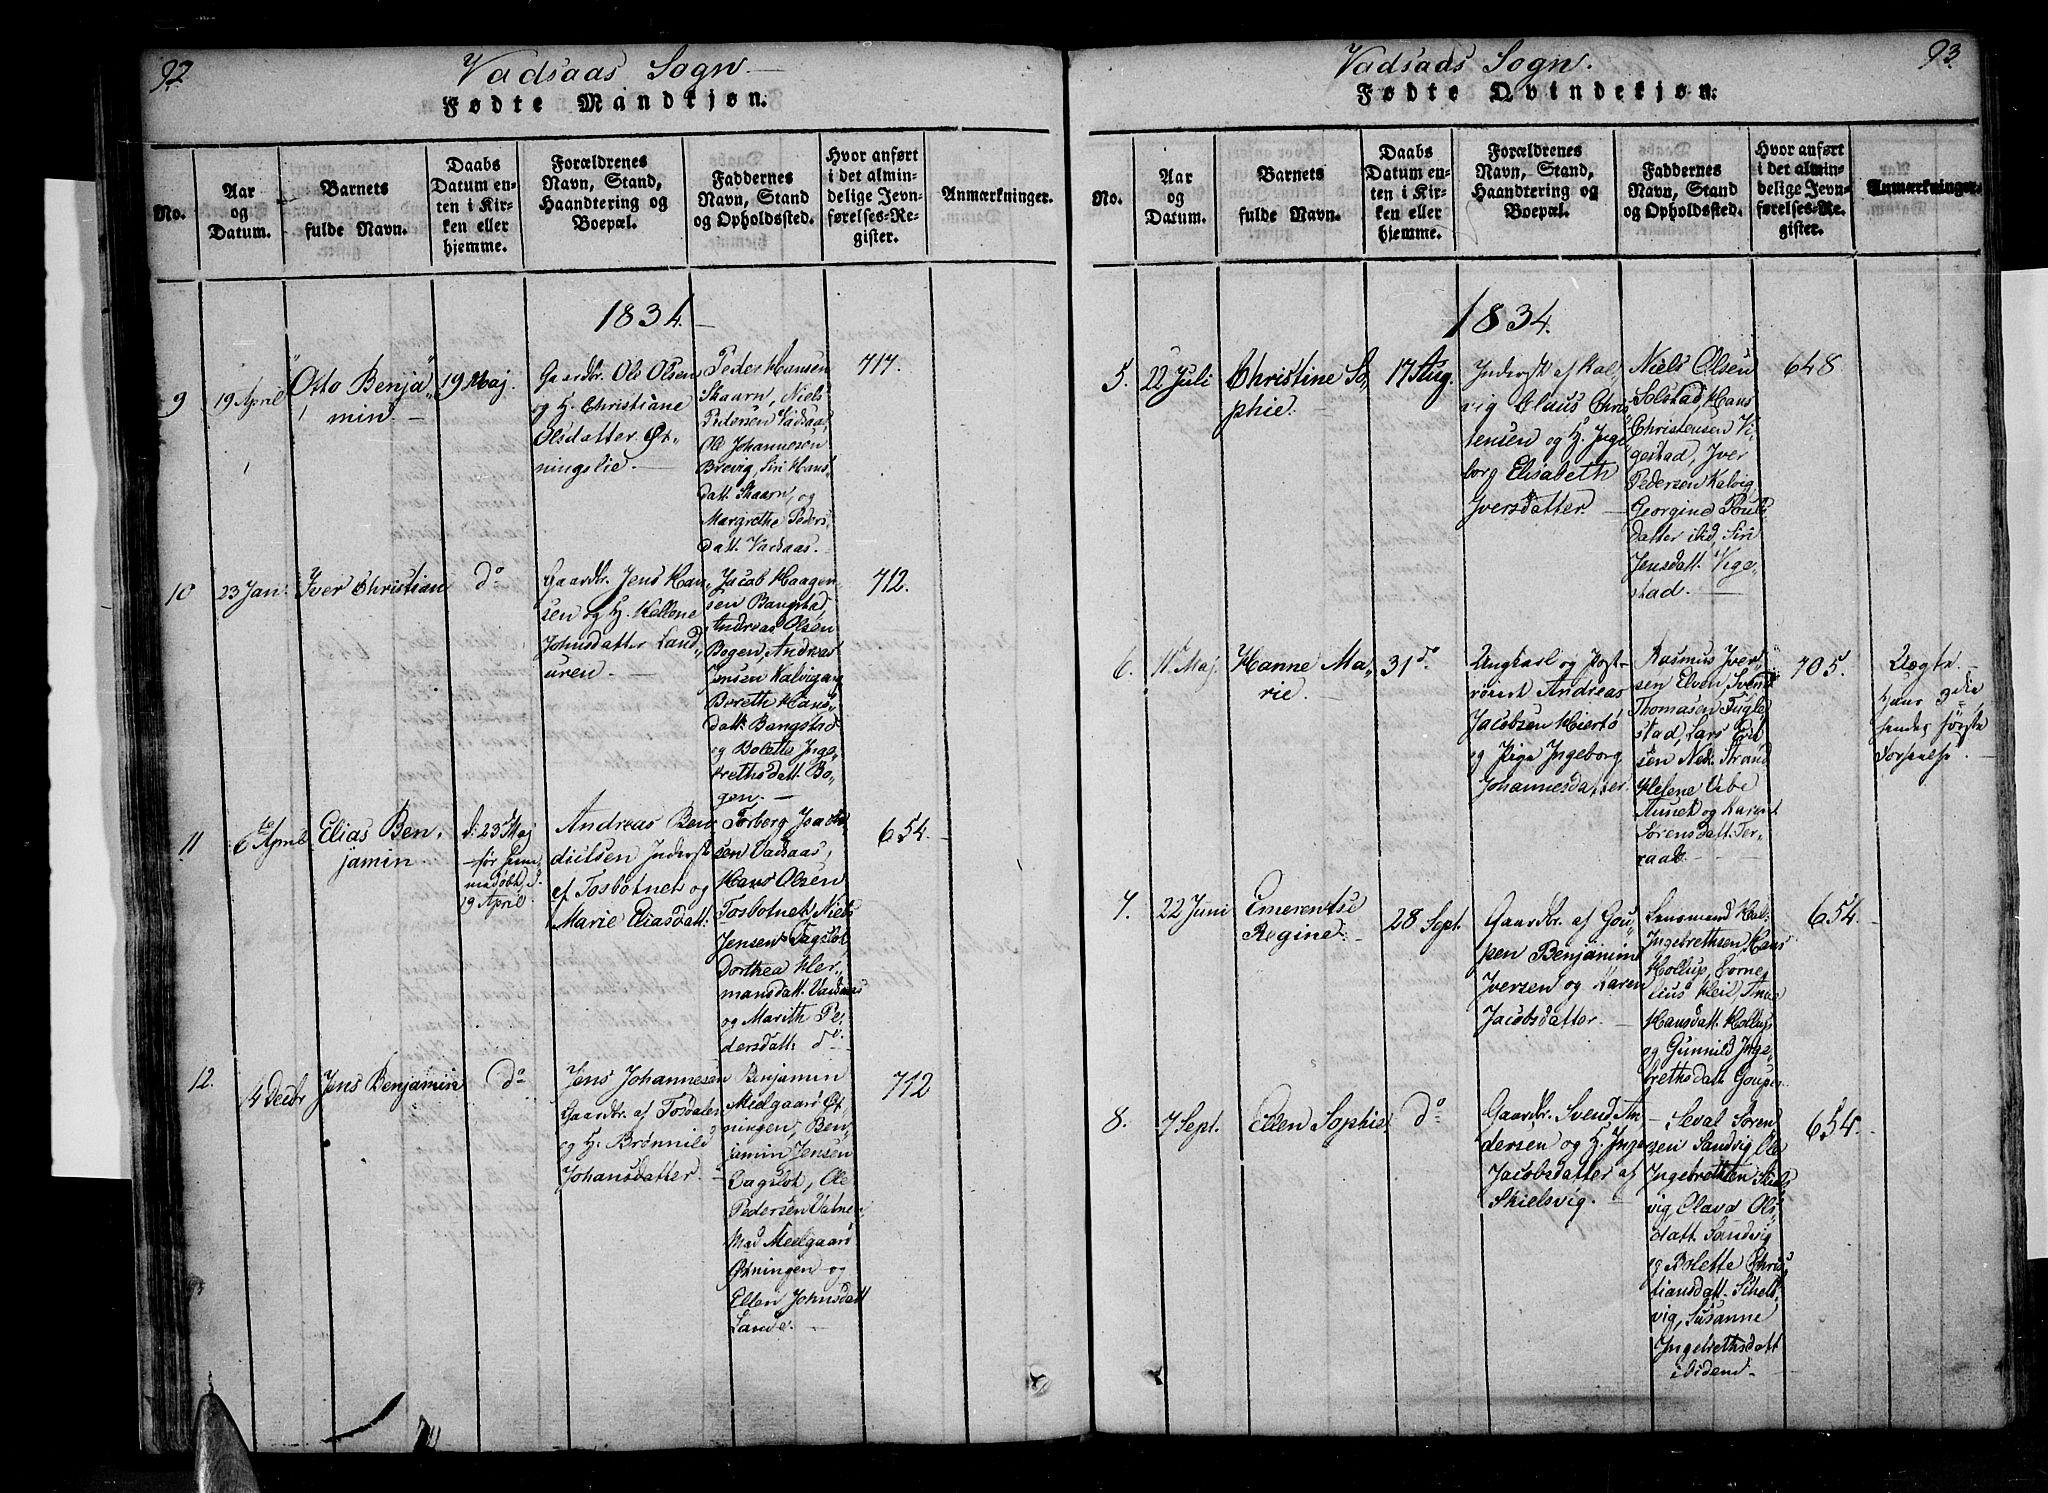 92.
Vadsaas Sogn
Fødte Mandkjøn.
No.
Aar
og
Datum.
Barnets
fulde Navn.
Daabs
Datum en-
ten i Kir-
ken eller
hjemme.
Forældrenes
Navn, Stand,
Haandtering og
Boepæl.
Faddernes
Navn, Stand
og Opholdssted.
Hvor anført
i det almin-
delige Jevn-
førelses-Re-
gister.
Anmærkninger.
1834.
9
19 April
Otto Benja-
min
19 Maj.
Gaardbr. Ole Olsen
og H. Christiane
Olsdatter Øt-
ningslie.
Peder Hansen
Skaarn, Niels
Pedersen Vadsaas
Ole Johannesen
Brevig, Siri Hans
datt. Skaarn, og
Margrethe Peders
datt. Vadsaas.
717.
10
23 Jan.
Iver Christian
do
Gaardbr. Jens Han-
sen og H. Kellone
Johnsdatter Land-
uren.
Jacob Haagen-
sen Bangstad,
Andreas Olsen
Bogen, Andreas
Jensen Kalvigang
Bereth Hans
datt. Bangstad
og Bolette Inge-
brethsdatt. Bo-
gen.
712.
11
6te April
Elias Ben-
jamin
d. 23 Maj
før hjem
madøbt d.
19 April.
Andreas Ben-
dictsen Inderst
af Tosbotnet og
Marie Eliasdatt.
Torberg Isach-
sen Vadsaas,
Hans Olsen
Tosbotnet, Niels
Jensen Bagslot,
Dorthea Her-
mansdatt. Vadsaas
og Marith Pe-
dersdatt. do
654.
12.
4 Decbr
Jens Benjamin
do
Jens Johannesen
Gaardbr. af Tosdalen
og H. Brønnild
Johansdatter.
Benjamin
Meelgaard Øt-
ningen, Ben-
jamin Jensen
Bagslot, Ole
Pedersen Vatne,
Mad Meelgaard
Øtningen og
Ellen Johnsdatt
Lande.
712
93.
Vadsaas Sogn.
Fødte Qvindekjøn.
No.
Aar
og
Datum.
Barnets
fulde Navn.
Daabs
Datum en-
ten i Kir-
ken eller
hjemme.
Forældrenes
Navn, Stand,
Haandtering og
Boepæl.
Faddernes
Navn, Stand
og Opholdssted.
Hvor anført
i det almin-
delige Jevn-
førelses-Re-
gister.
Anmærkninger.
1834.
5.
22 Juli
Christine So-
phie.
17 Aug.
Inderst af Kal-
vig Claus Chris-
tensen og H. Inge-
borg Elisabeth
Iversdatter.
Niels Olsen
Solstad, Hans
Christensen Vi-
gestad, Iver
Pedersen Kalvig,
Georgine Pouls
datter ibid, Siri
Jensdatt. Vige-
stad.
648
6.
11 Maj.
Hanne Ma-
rie.
31 do
Ungkarl og Post-
Andreas
Jacobsen Hiertø
og Pige Ingeborg
Johannesdatter.
Rasmus Iver-
sen Elven, Svend
Thomasen Fugle
stad, Lars
sen Ned. Strand
Helene
og Karen
Sørensdatt. Ter-
raak
705.
Uægte.
Hans 2die
hendes første
Forseelse.
7.
22 Juni
Emerentse
Regine.
28 Sept.
Gaardbr. af Gou-
pen Benjamin
Iversen og Karen
Jacobsdatter.
Lensmand Hal.
Ingebrethsen, Hans
Hollup, Corne-
lius Heil, Anne
Hansdatt. Hollup
og Gunnild Inge-
brethsdatt. Goupen
654.
8.
7 Sept.
Ellen Sophie
do
Gaardbr. Svend An-
dersen og H. Inge
Jacobsdatter af
Skielsvig.
Seval Søren
sen Sandvig, Ole
Ingebretsen Skiels
vig, Olava Ols
datt. Sandvig
og Bolette Chris-
tiansdatt. Schels
vig, Susanne
Ingebrethsdatt
ibidem.
654.